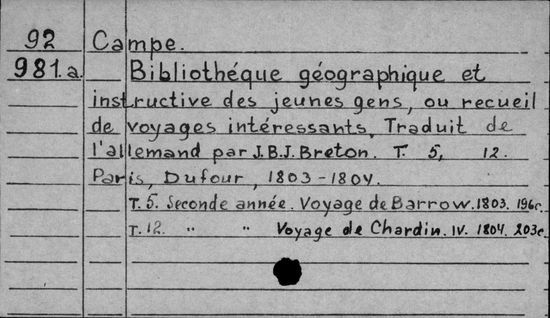 92 Campe.
981.a. Bibliothéque géographique et
instructive des jeunes gens, ou recueil
de voyages intéressants. Traduit de
l'allemand par J.B.J. Breton. T. 5, 12.
Paris, Dufour, 1803-1804.
T. 5. Seconde année. Voyage de Barrow. 1803. 196c.
T. 12. " " Voyage de Chardin. IV. 1804. 203c.